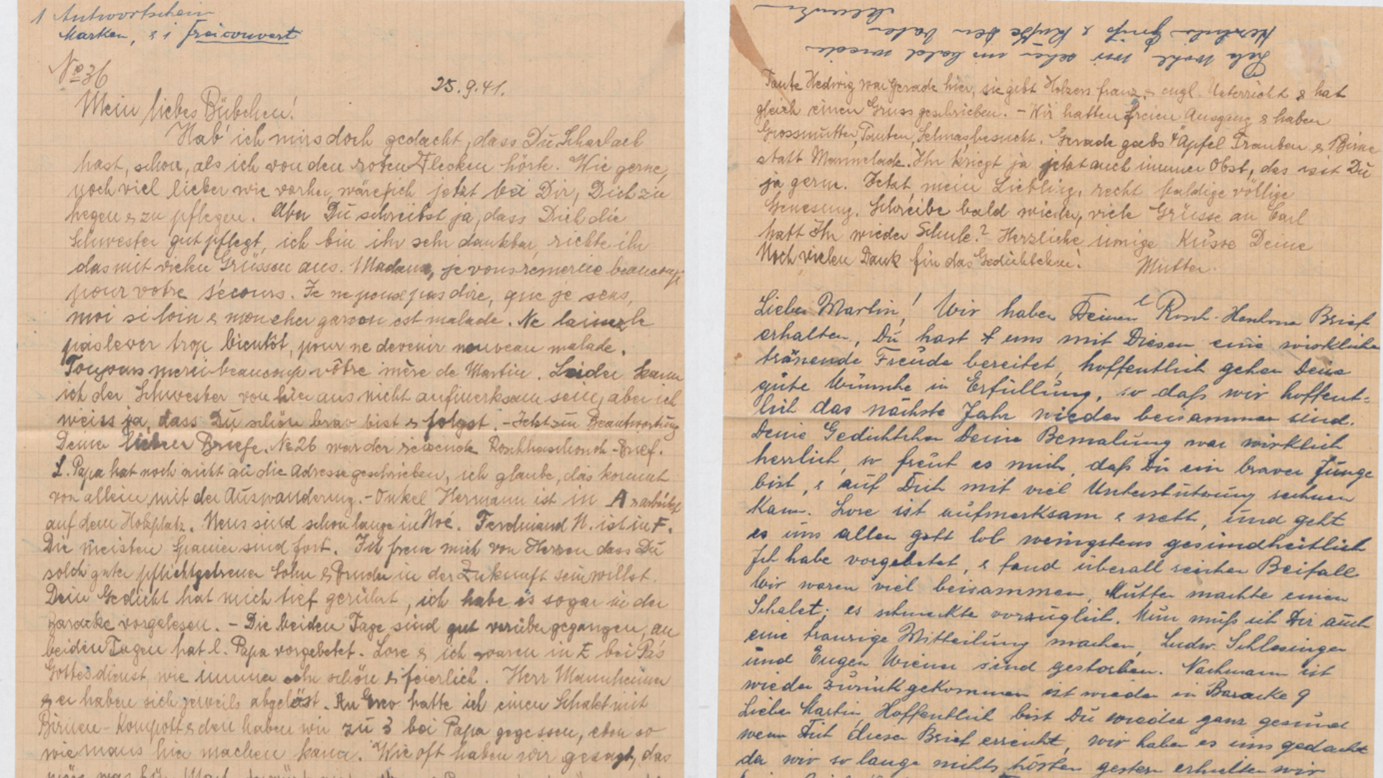 1 Antwortschein
Marken, & 1 freicouvert
No 36
25.9.41.
Mein liebes Bübchen!
Hab' ich mirs doch gedacht, dass Du Scharlach
hast, schon, als ich von den roten Flecken hörte. Wie gerne,
noch viel lieber wie vorher, wäre ich jetzt bei Dir, Dich zu
hegen & zu pflegen. Aber Du schreibst ja, dass Dich die
Schwester gut pflegt, ich bin ihr sehr dankbar, richte ihr
das mit vielen Grüssen aus. Madame, je vous remercie beaucoup
pour votre secours. Je ne peux pas dire, que je sens,
moi si loin & mon cher garcon est malade. Ne laissez le
pas lever trop bientôt, pour ne devenir nouveau malade.
Toujours merci beaucoup vôtre mère de Martin. Leider kann
ich der Schwester von hier aus nicht aufmerksam sein, aber ich
weiss ja, dass Du schön brav bist & folgst. - Jetzt zu Beantwortung
Deiner lieben Briefe. No 26 war der reizende Roschhaschonoh-Brief.
L. Papa hat noch nicht an die Adresse geschrieben, ich glaube, das kommt
von allein mit der Auswanderung. - Onkel Hermann ist in A
auf dem Holzplatz. Neus sind schon lange in Noé. Ferdinand N. ist in F.
Die meisten sind fort. Ich freue mich von Herzen dass Du
solch guter pflichtgetreuer Sohn & Bruder in der Zukunft sein willst.
Dein Gedicht hat mich tief gerührt, ich habe es sogar in der
Baracke vorgelesen. - Die beiden Tage sind gut vorübergegangen, an
beiden Tagen hat l. Papa vorgebetet. Lore & ich waren in E bei Pas
Gottesdienst, wie immer sehr schön & feierlich. Herr Mannheimer
& er haben sich jeweils abgelöst. An Erev hatte ich einen Schalet mit
Birnen-Kompott & den haben wir zu 3 bei Papa gegessen, eben so
wie mans hier machen kann. Wie oft haben wir gesagt, das
Lebe wohl, wir sehen uns bald wieder
Herzliche Grüße & Küsse Dein Vater
Tante Hedwig war gerade hier, sie gibt Holzers franz. & engl. Unterricht & hat
gleich einen Gruss geschrieben. - Wir hatten freien Ausgang & haben
Grossmutter, Tanten, Selmas besucht. Gerade gabs Äpfel Trauben & Birne
statt Marmelade. Ihr kriegt ja jetzt auch immer Obst, das isst Du
ja gern. Jetzt mein Liebling, recht baldige völlige
Genesung. Schreibe bald wieder, viele Grüsse an Carl
habt Ihr wieder Schule? Herzliche innige Küsse Deine
Noch vielen Dank für das Gedichtchen! Mutter.
Lieber Martin! Wir haben Deinen l Rosch-Haschona Brief
erhalten, Du hast uns mit Diesen eine wirkliche
tränende Freude bereitet, hoffentlich gehen Deine
gute Wünsche in Erfüllung, so daß wir hoffent-
lich das nächste Jahr wieder beisammen sind.
Deine Gedichtchen Deine Bemalung war wirklich
herrlich, so freut es mich, daß Du ein braver Junge
bist, & auf Dich mit viel Unterstützung rechnen
kann. Lore ist aufmerksam & nett, und geht
es uns allen gott lob wenigstens gesundheitlich
Ich habe vorgebetet, & fand überall reichen Beifall
Wir waren viel beisammen, Mutter machte einen
Schalet; es schmeckte vorzüglich. Nun muß ich Dir auch
eine traurige Mitteilung machen, Ludw. Schlesinger
und Eugen Wiener sind gestorben. Nachmann ist
wieder zurückgekommen ist wieder in Baracke 9
Lieber Martin, Hoffentlich bist Du wieder ganz gesund
wenn Dich dieser Brief erreicht, wir haben es uns gedacht
da wir so lange nichts hörten gestern erhielten wir